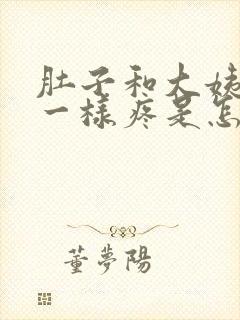 肚子和大姨
一樣疼是怎
董夢陽